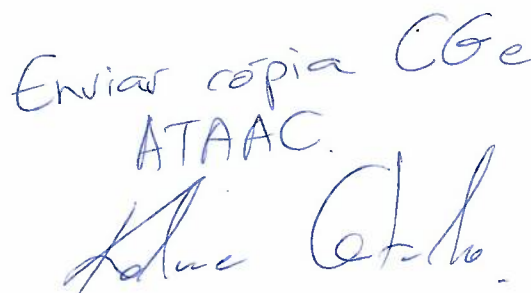 Enviar cópia CG e
ATAAC.